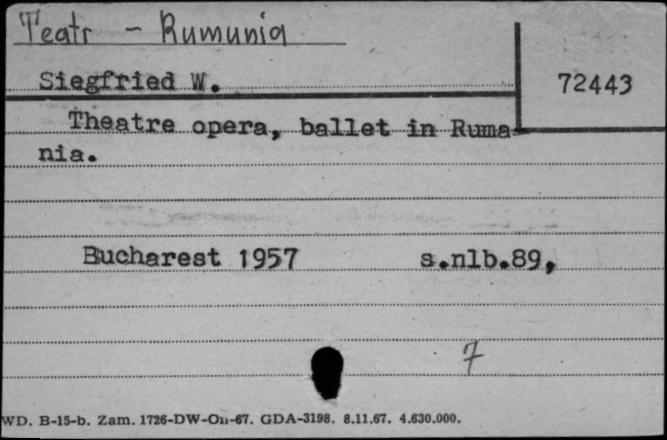 Teatr - Rumunia
Siegfried W.
72443
Theatre opera, ballet in Ruma-
nia.
Bucharest 1957 s.nlb.89,
7
WD. B-15-b. Zam. 1726-DW-On-67. GDA-3198. 8.11.67. 4.630.000.